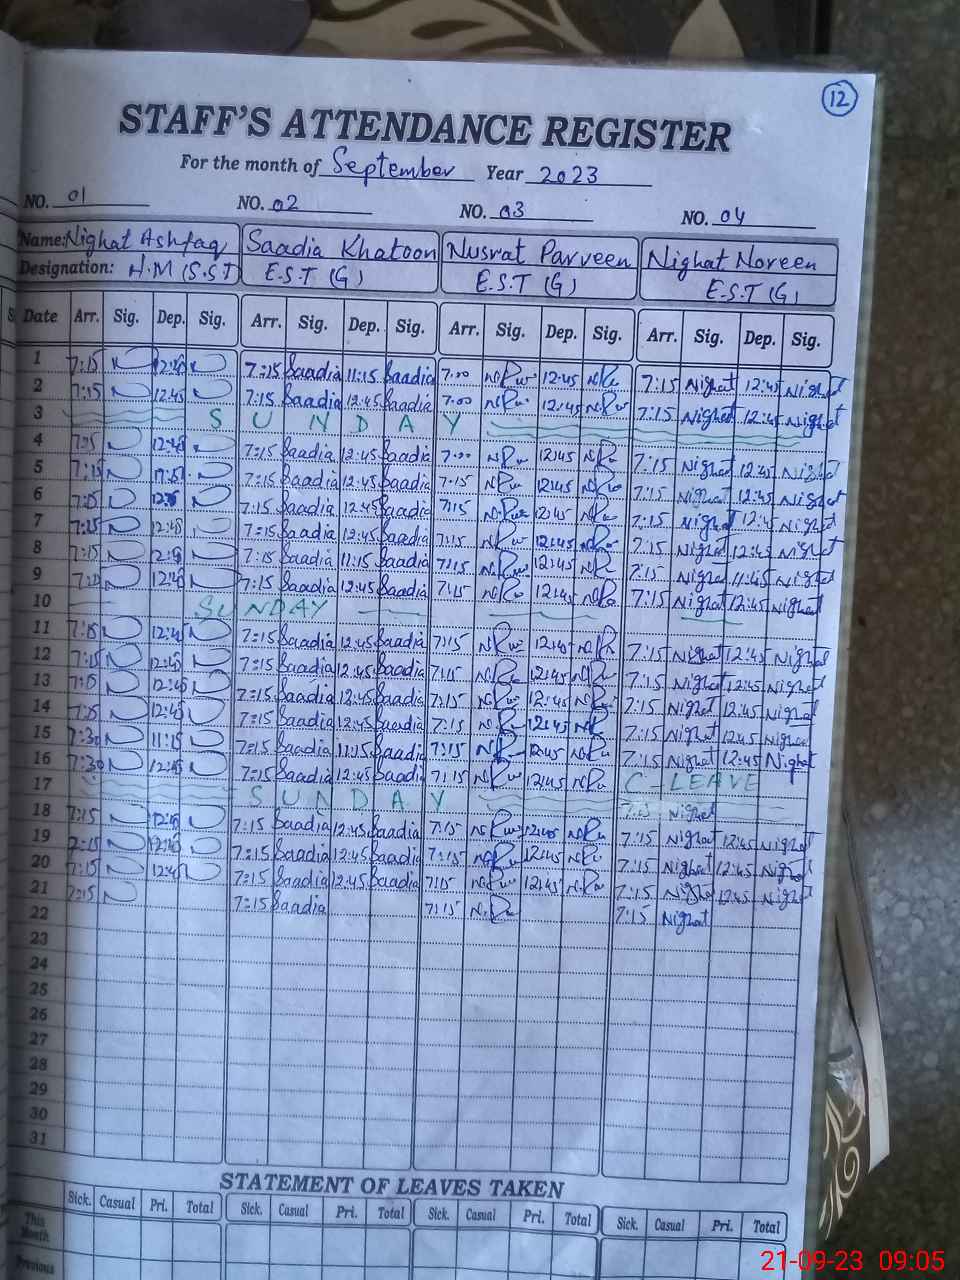 12
STAFF'S ATTENDANCE REGISTER
For the month of September Year 2023
NO. 01 NO. 02 NO. 03 NO. 04
Name: Nighat Ashfaq Saadia Khatoon Nusrat Parveen Nighat Noreen
Designation: H.M (S.S.T) E.S.T (G) E.S.T (G) E.S.T (G)
Date Arr. Sig. Dep. Sig. Arr. Sig. Dep. Sig. Arr. Sig. Dep. Sig. Arr. Sig. Dep. Sig.
1 7:15 12:45 7:15 Saadia 11:15 Saadia 7:00 12:45 7:15 Nighat 12:45 Nighat
2 7:15 12:45 7:15 Saadia 12:45 Saadia 7:00 12:45 7:15 Nighat 12:45 Nighat
3 SUNDAY
4 7:15 Saadia 12:45 Saadia 7:00 12:45 7:15 Nighat 12:45 Nighat
5 7:15 7:15 Saadia 12:45 Saadia 7:15 12:45 7:15 Nighat 12:45 Nighat
6 7:15 7:15 Saadia 12:45 Saadia 7:15 12:45 7:15 Nighat 12:45 Nighat
7 7:15 7:15 Saadia 12:45 Saadia 7:15 12:45 7:15 Nighat 12:45 Nighat
8 7:15 7:15 Saadia 11:15 Saadia 7:15 12:45 7:15 Nighat 11:45 Nighat
9 12:45 7:15 Saadia 12:45 Saadia 7:15 12:45 7:15 Nighat 12:45 Nighat
10 SUNDAY
11 7:15 12:45 7:15 Saadia 12:45 Saadia 7:15 12:45 7:15 Nighat 12:45 Nighat
12 7:15 12:45 7:15 Saadia 12:45 Saadia 7:15 12:45 7:15 Nighat 12:45 Nighat
13 7:15 12:45 7:15 Saadia 12:45 Saadia 7:15 12:45 7:15 Nighat 12:45 Nighat
14 7:15 12:45 7:15 Saadia 12:45 Saadia 7:15 12:45 7:15 Nighat 12:45 Nighat
15 7:30 11:15 7:15 Saadia 11:15 Saadia 7:15 12:45 7:15 Nighat 12:45 Nighat
16 7:30 12:45 7:15 Saadia 12:45 Saadia 7:15 12:45 C-LEAVE
17 SUNDAY 7:15 Nighat
18 7:15 12:45 7:15 Saadia 12:45 Saadia 7:15 12:45 7:15 Nighat 12:45 Nighat
19 7:15 12:45 7:15 Saadia 12:45 Saadia 7:15 12:45 7:15 Nighat 12:45 Nighat
20 7:15 12:45 7:15 Saadia 12:45 Saadia 7:15 12:45 7:15 Nighat 12:45 Nighat
21 7:15 7:15 Saadia 7:15 7:15 Nighat
22
23
24
25
26
27
28
29
30
31
STATEMENT OF LEAVES TAKEN
Sick. Casual Pri. Total Sick. Casual Pri. Total Sick. Casual Pri. Total Sick. Casual Pri. Total
This Month
Previous
21-09-23 09:05